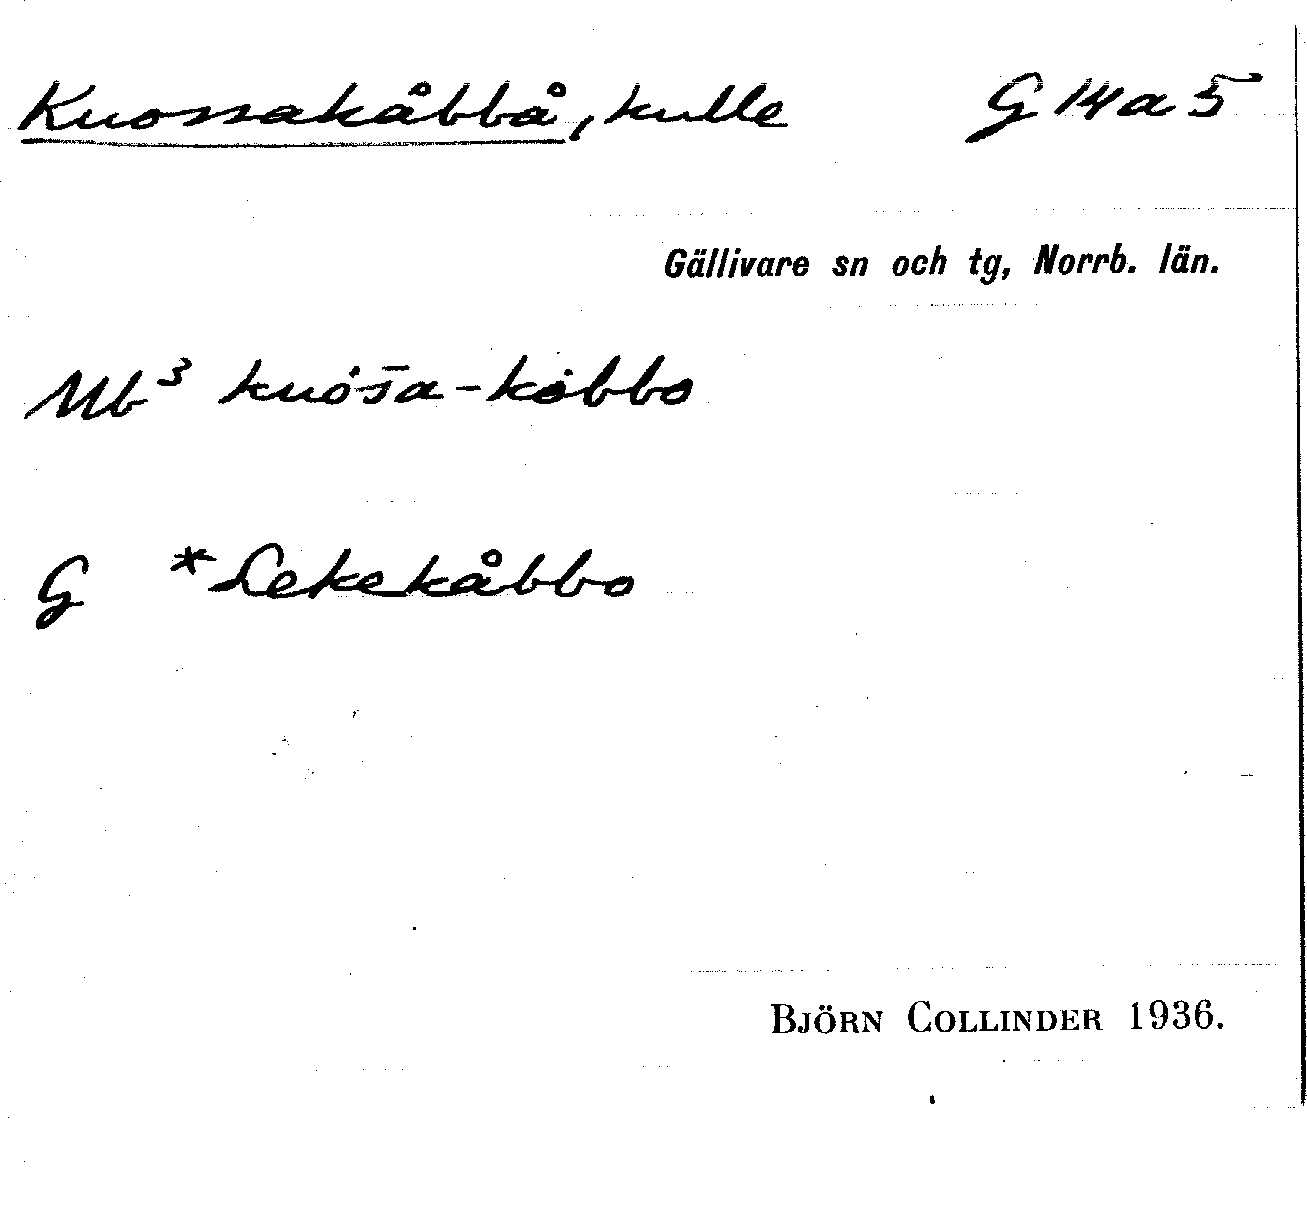 Kuossakåbbå, kulle G 14 a 5
Gällivare sn och tg, Norrb. län.
Mb³ kuȯs̄a-kȯbbo
G *Lekekåbbo
BJÖRN COLLINDER 1936.